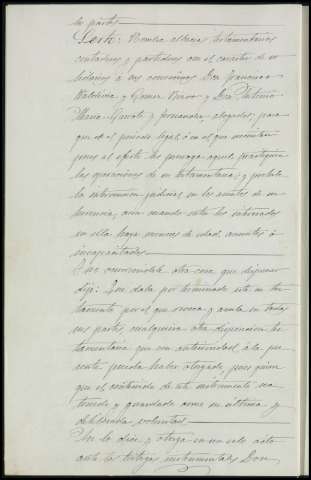 tes partes
Sexta: Nombra albaceas testamentarios
contadores y partidores con el caracter de so
lidarios á sus convecinos Don Francisco
Valdivia y Gomez Bravo y Don Antonio
Maria Garcia y Fernandez abogados, para
que en el periodo legal, ó en el que necesiten
pues al efecto les proroga aquel, practiquen
las operaciones de su testamentaria; y prohibe
la intervencion judicial en los asuntos de su
herencia, aun cuando entre los interesados
en ella haya menores de edad, ausentes ó
incapacitados
Y no ocurriendole otra cosa que disponer
dijo: Que daba por terminado este su tes
tamento por el que revoca y anula en todas
sus partes, cualquiera otra disposicion tes
tamentaria que con anterioridad á la pre
sente pueda haber otorgado, pues quiere
que el contenido de este instrumento sea
tenido y guardado como su última y
deliberada voluntad
Asi lo dice y otorga en un solo acto
ante los testigos instrumentales Don